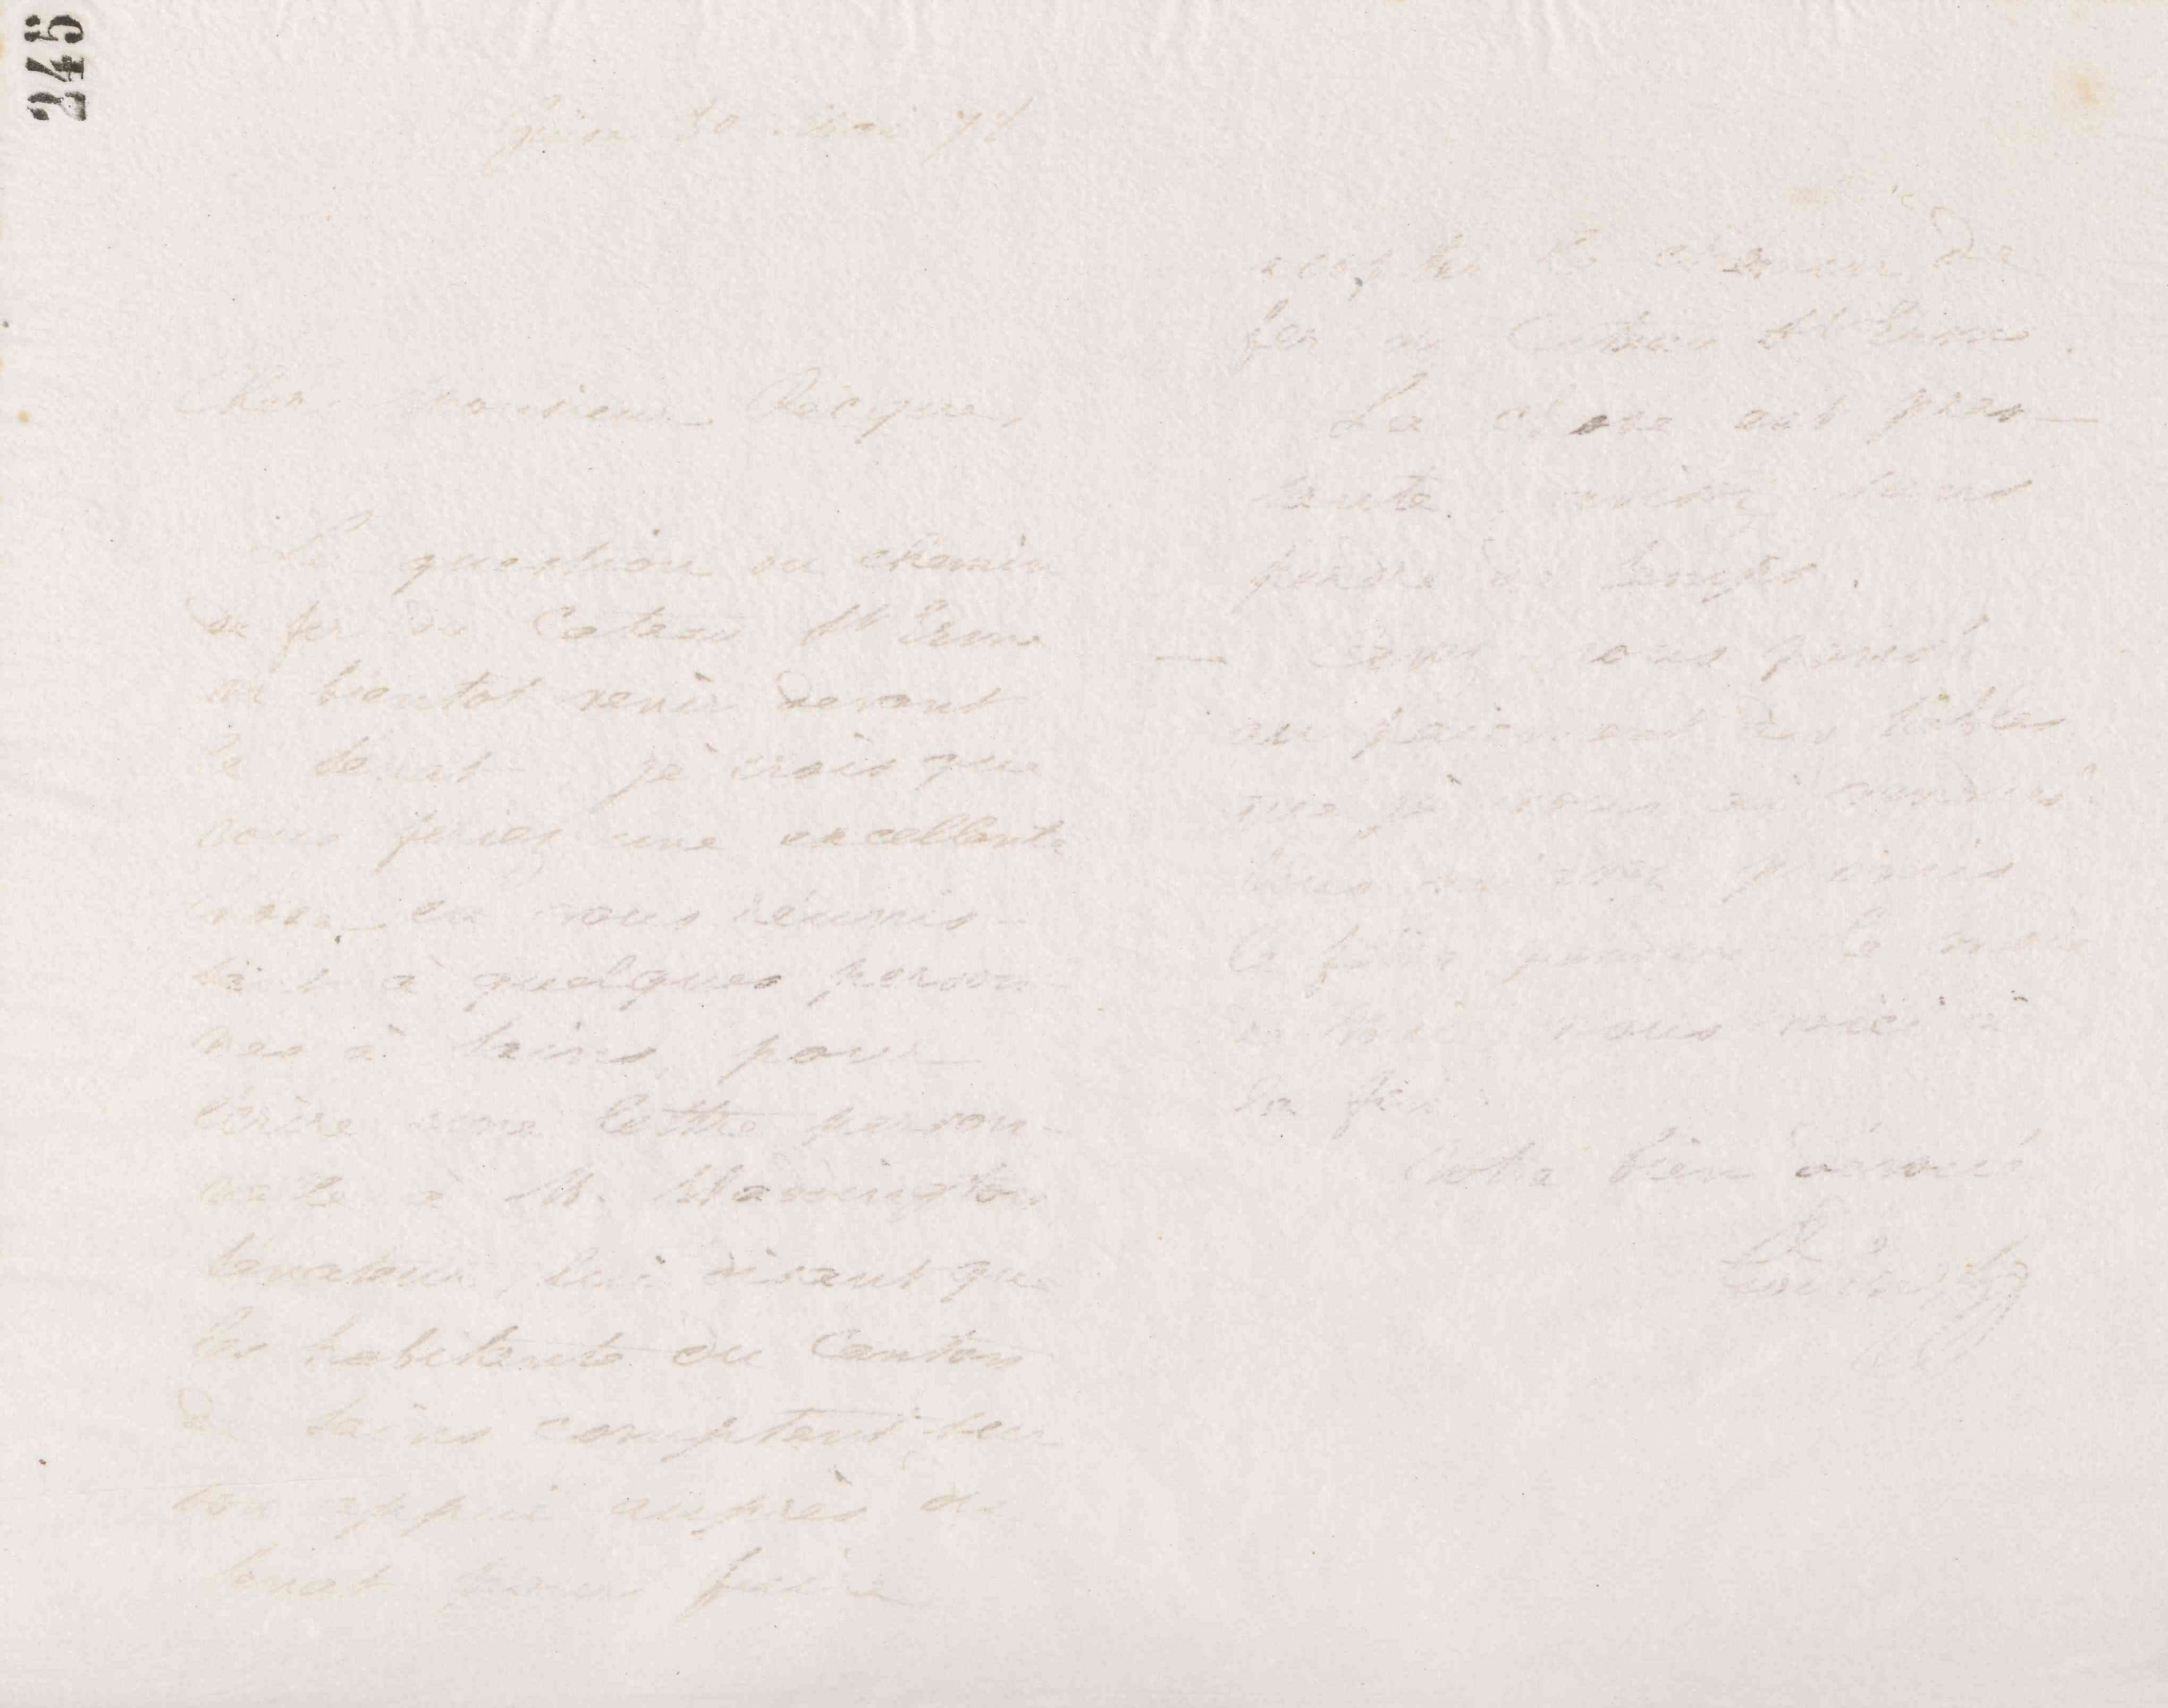 245
30 Mai 78
Cher Monsieur
La question du chemin
de fer de Cateau St Erme
va bientot venir devant
le Senat, je crois que
vous feriez une excellente
chose en vous réunis-
sant à quelques person-
nes à Sains pour
écrire une lettre person-
nelle à M. Waddington
Senateur, lui disant que
les habitants du Canton
de Sains comptent sur
son appui auprès du
Senat pour faire
accepter le chemin de
fer de Cateau St Erme.
La chose est pres-
sante, sans
perdre de temps.
— vous pensé
au paiement des
que je vous ai
vous m'avez promis
le faire le mois
de Mai, nous voici à
la fin.
Votre bien dévoué